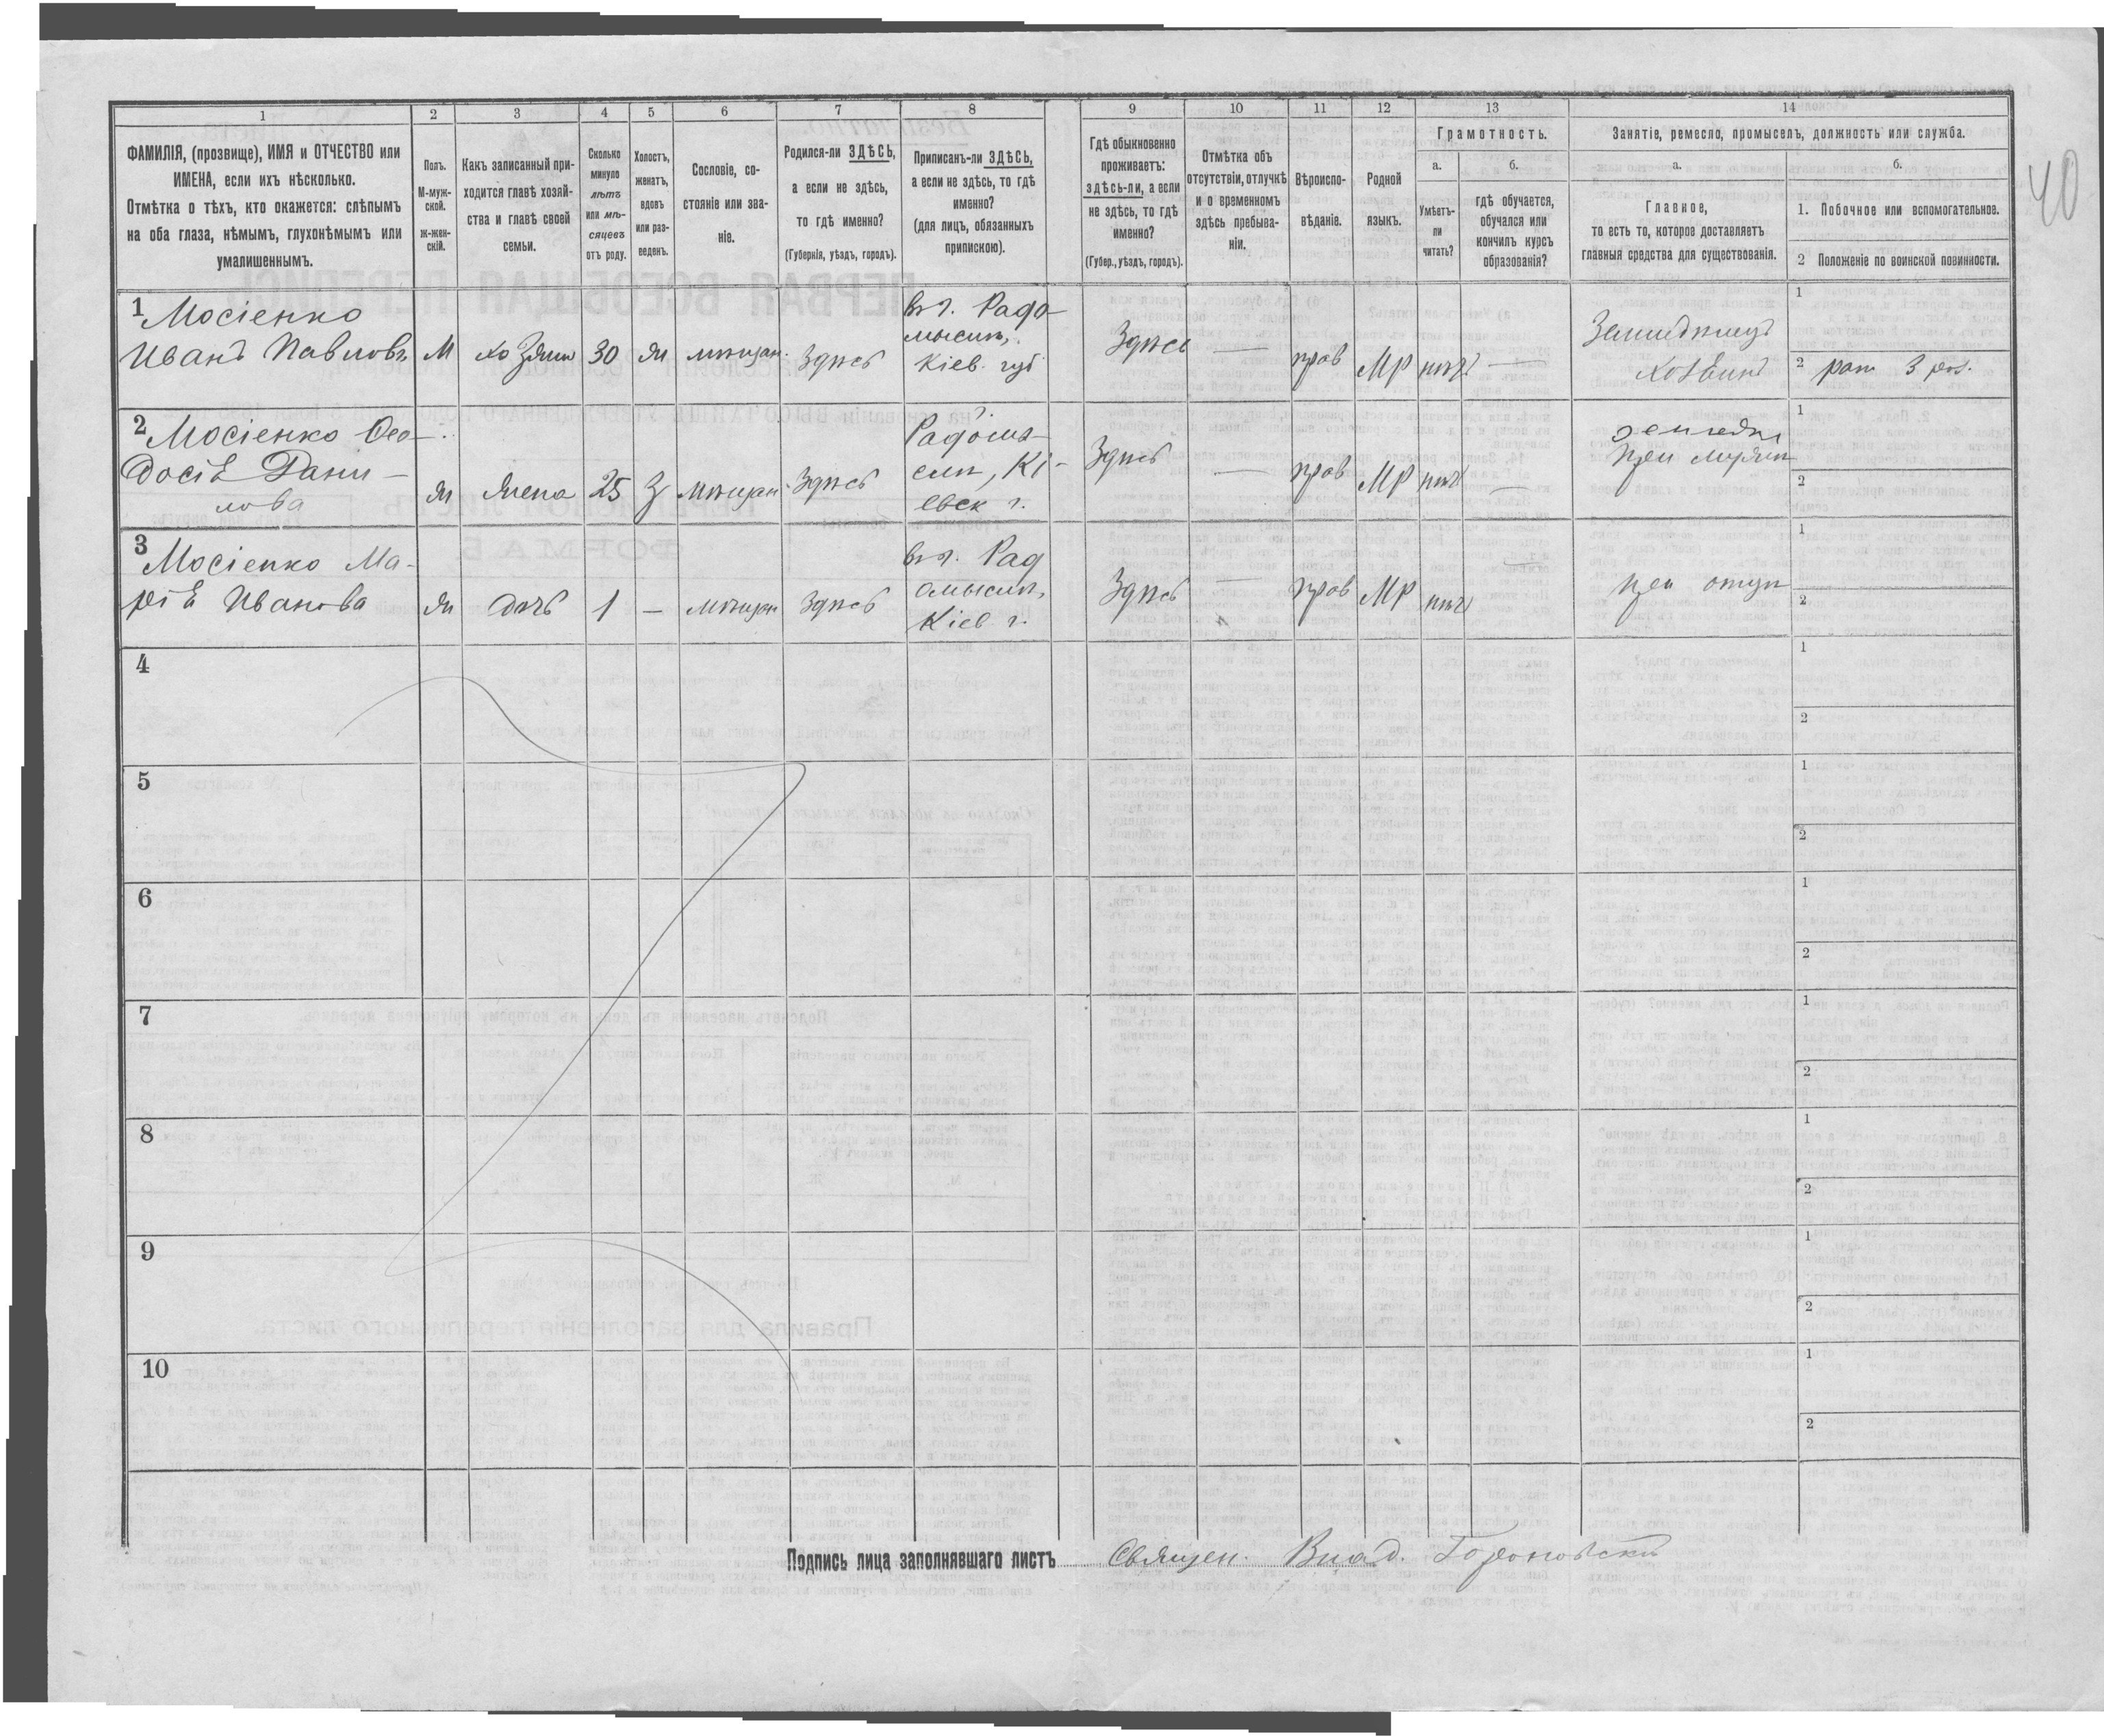 1 2 3 4 5 6 7 8 9 10 11 12 13 14
ФАМИЛІЯ, (прозвище), ИМЯ и ОТЧЕСТВО или
ИМЕНА, если ихъ нѣсколько.
Отмѣтка о тѣхъ, кто окажется: слѣпымъ
на оба глаза, нѣмымъ, глухонѣмымъ или
умалишеннымъ.
Полъ.
М-муж-
ской.
ж-жен-
скій.
Какъ записанный при-
ходится главѣ хозяй-
ства и главѣ своей
семьи.
Сколько
минуло
лѣтъ
или мѣ-
сяцевъ
отъ роду.
Холостъ,
женатъ,
вдовъ
или раз-
веденъ.
Сословіе, со-
стояніе или зва-
ніе.
Родился-ли ЗДѢСЬ,
а если не здѣсь,
то гдѣ именно?
(Губернія, уѣздъ, городъ).
Приписанъ-ли ЗДѢСЬ,
а если не здѣсь, то гдѣ
именно?
(для лицъ, обязанныхъ
припискою).
Гдѣ обыкновенно
проживаетъ:
здѣсь-ли, а если
не здѣсь, то гдѣ
именно?
(Губер., уѣздъ, городъ).
Отмѣтка объ
отсутствіи, отлучкѣ
и о временномъ
здѣсь пребыва-
ніи.
Вѣроиспо-
вѣданіе.
Родной
языкъ.
Грамотность.
а.
Умѣетъ-
ли
читать?
б.
гдѣ обучается,
обучался или
кончилъ курсъ
образованія?
Занятіе, ремесло, промыселъ, должность или служба.
а.
Главное,
то есть то, которое доставляетъ
главныя средства для существованія.
б.
1. Побочное или вспомогательное.
2 Положеніе по воинской повинности.
40
1 Мосіенко
Иванъ Павловъ
М
хозяин
30
ж
мѣщан.
Здѣсь
въ г. Радо-
мыслѣ,
Кіев. губ
Здѣсь
—
прав
МР
нѣтъ
—
Земледѣлецъ
хозяинъ
1
2
2 Мосіенко Ѳео-
досія Дани-
лова
ж
жена
25
З
мѣщан.
Здѣсь
Радомы-
слѣ, Кі-
евск г.
Здѣсь
—
прав
МР
нѣтъ
—
земледѣл
при мужѣ
1
2
3 Мосіенко Ма-
рія Иванова
ж
дочь
1
—
мѣщан
Здѣсь
въ г. Рад
омыслѣ,
Кіев г.
Здѣсь
—
прав
МР
нѣтъ
—
при отцѣ
1
2
4
1
2
5
1
2
6
1
2
7
1
2
8
1
2
9
1
2
10
1
2
Подпись лица заполнявшаго листъ Священ. Влад.